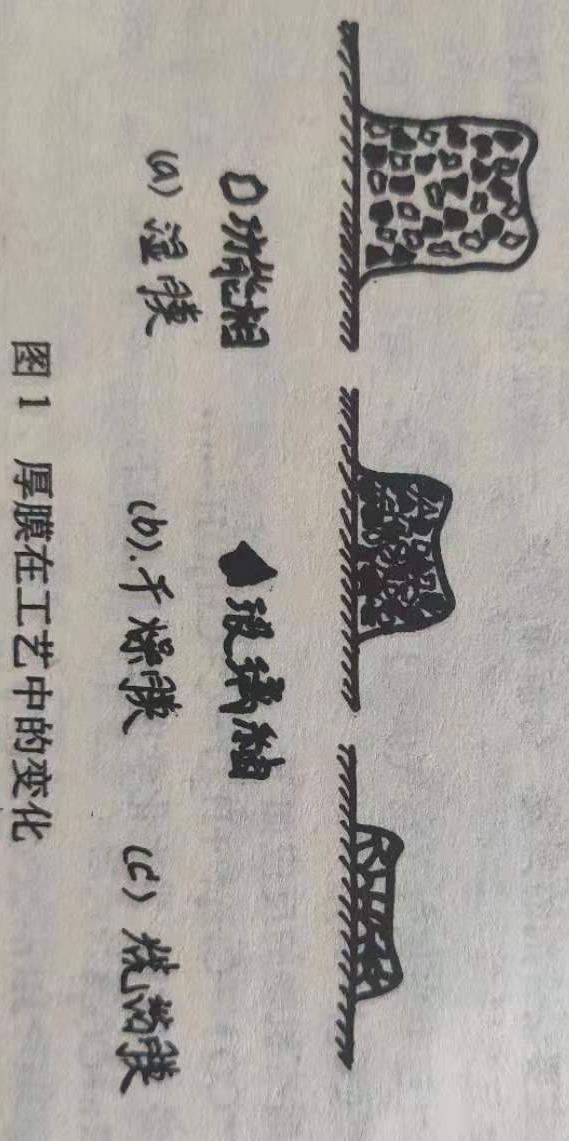 功能相 玻璃釉
(a) 湿膜 (b).干燥膜 (c) 烧结膜
图1 厚膜在工艺中的变化